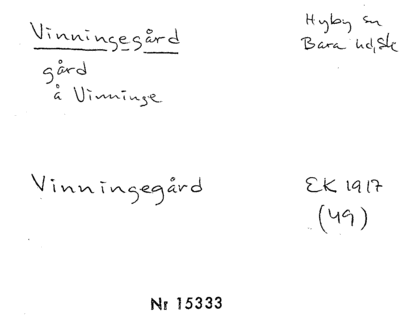 Vinningegård
Hyby sn
Bara hd, Sk
gård
å Vinninge
Vinningegård
EK 1917
(49)
Nr 15333